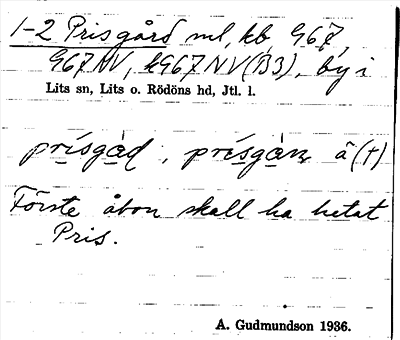 1-2 Prisgård ml, kb, 967,
967 NV, k967 NV (B3), by i
Lits sn, Lits o. Rödöns hd, Jtl. l.
prísgàd, prísgàn, å (†)
Förste åbon skall ha hetat
Pris.
A. Gudmundson 1936.